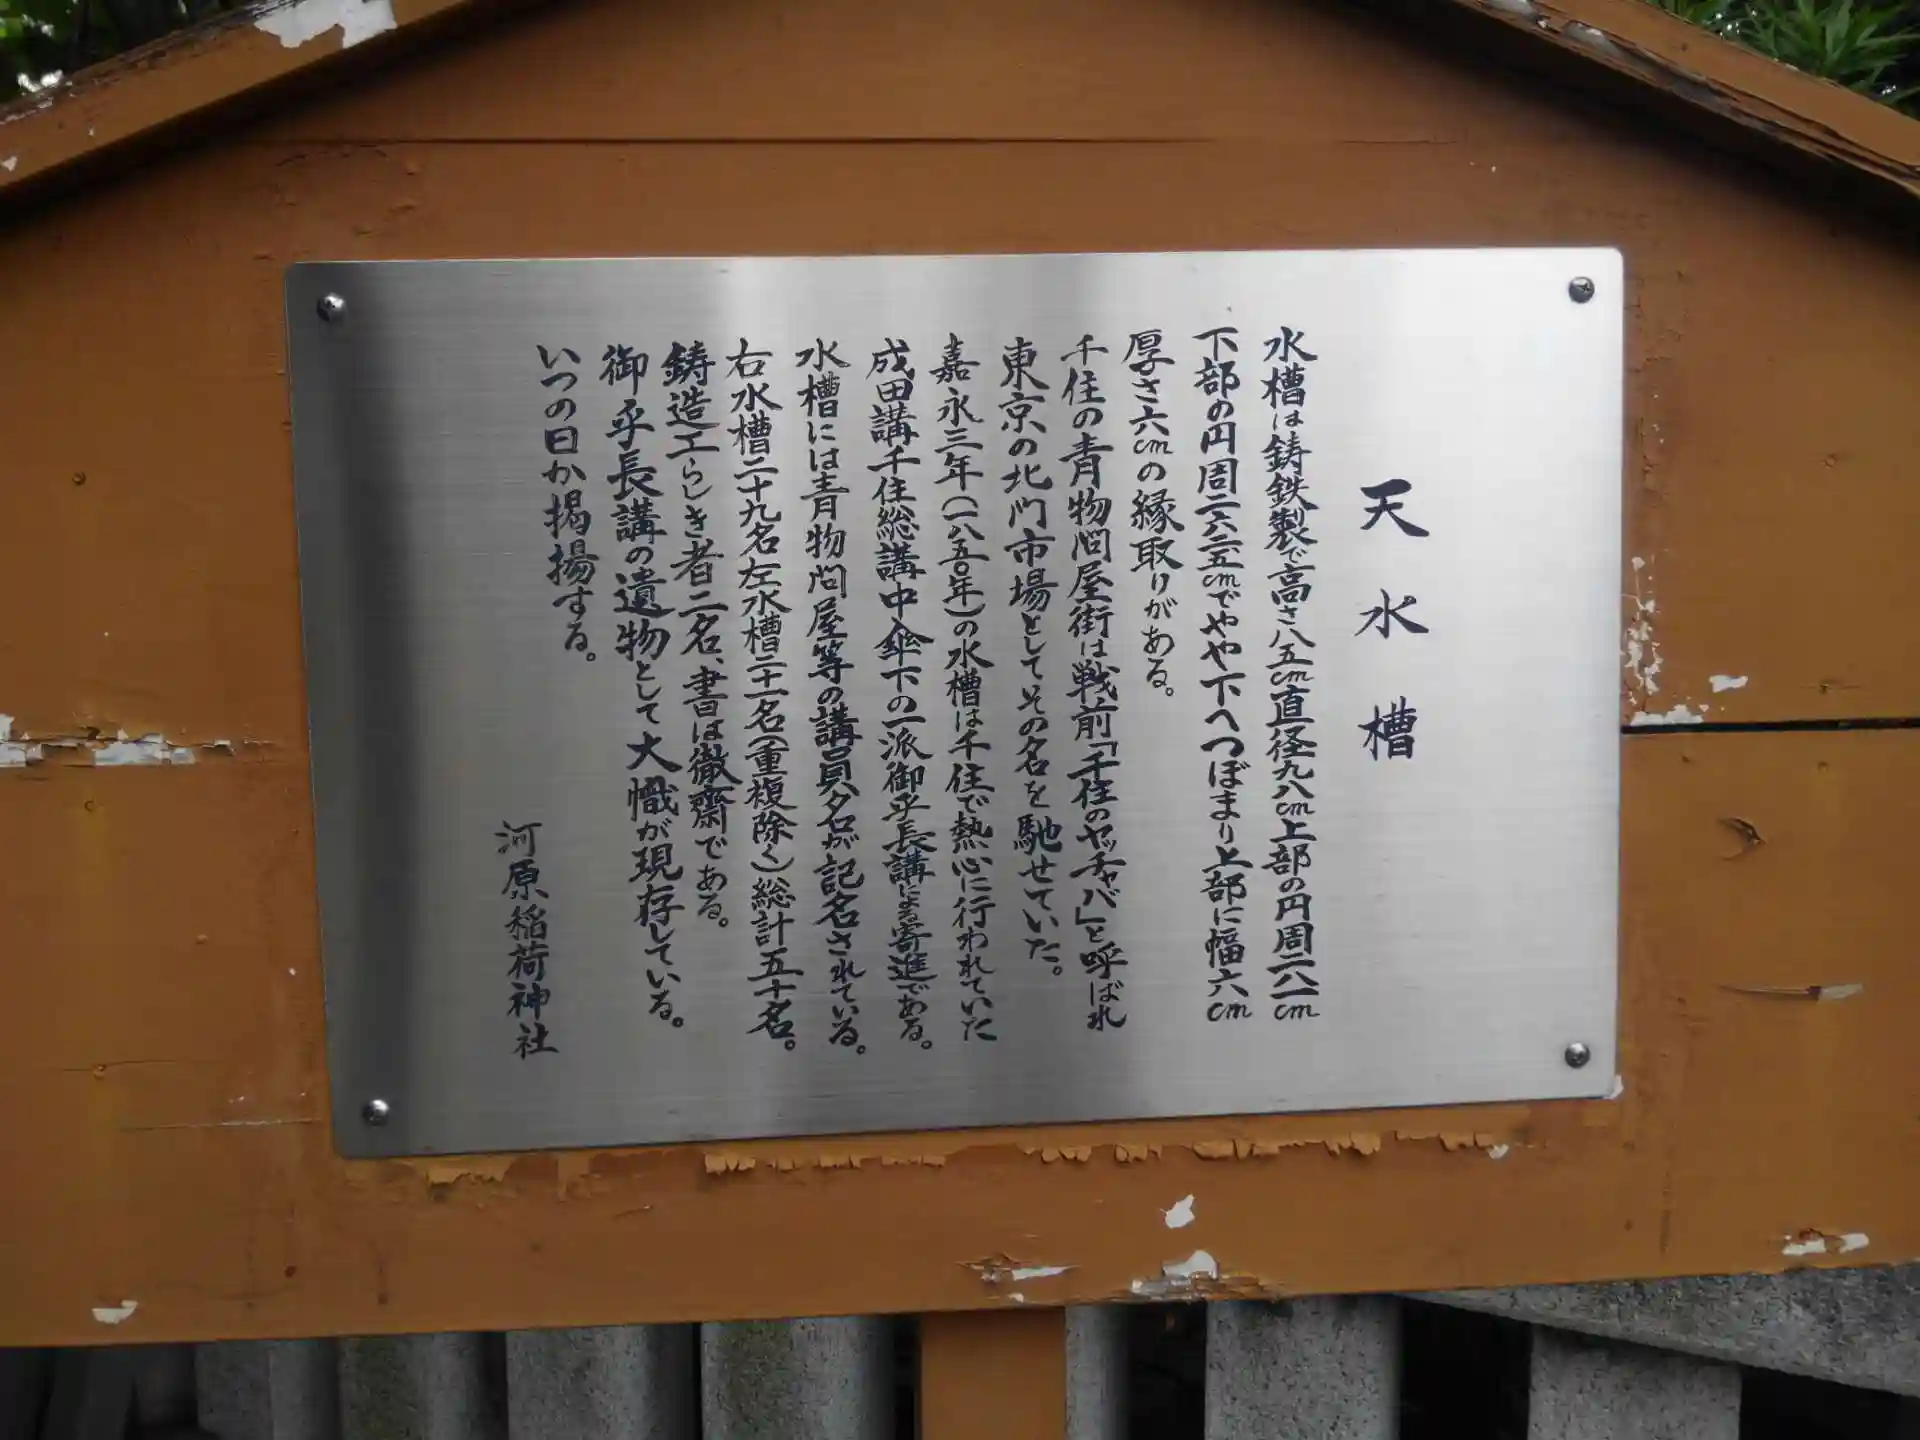 天水槽
水槽は鋳鉄製で高さ八五㎝直径九八㎝上部の円周二八一㎝
下部の円周二六二・五㎝でやや下へつぼまり上部に幅六㎝
厚さ六㎝の縁取りがある。
千住の青物問屋街は戦前「千住のヤッチャバ」と呼ばれ
東京の北門市場としてその名を馳せていた。
嘉永三年(一八五〇年)の水槽は千住で熱心に行われていた
成田講千住総講中傘下の一派御乎長講による寄進である。
水槽には青物問屋等の講員名が記名されている。
右水槽二十九名左水槽二十一名(重複除く)総計五十名。
鋳造工らしき者二名、書は徹齋である。
御乎長講の遺物として大幟が現存している。
いつの日か掲揚する。
河原稲荷神社